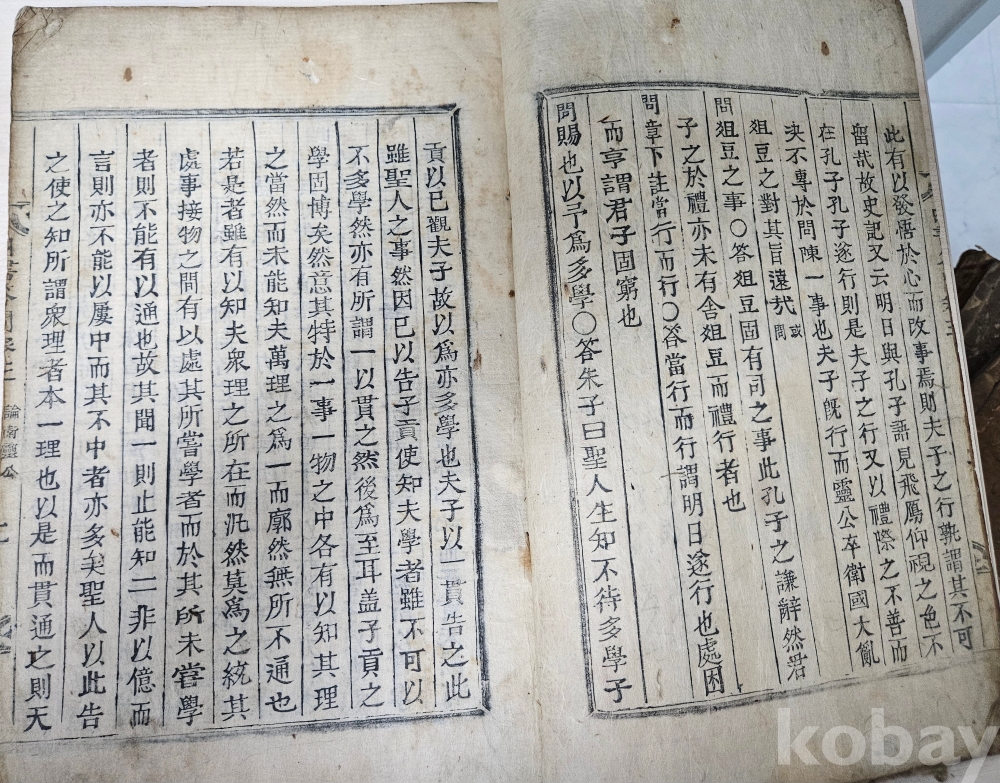 此有以發悟於心而改事焉則夫子之行孰謂其不可
留哉故史記又云明日與孔子語見飛鴈仰視之色不
在孔子孔子遂行則是夫子之行又以禮際之不善而
決不專於問陳一事也夫子旣行而靈公卒衛國大亂
俎豆之對其旨遠哉或問
問俎豆之事○答俎豆固有司之事此孔子之謙辭然君
子之於禮亦未有舍俎豆而禮行者也
問章下註當行而行○答當行而行謂明日遂行也處困
而亨謂君子固窮也
問賜也以予爲多學○答朱子曰聖人生知不待多學子
貢以己觀夫子故以爲亦多學也夫子以一貫告之此
雖聖人之事然因已以告子貢使知夫學者雖不可以
不多學然亦有所謂一以貫之然後爲至耳盖子貢之
學固博矣然意其特於一事一物之中各有以知其理
之當然而未能知夫萬理之爲一而廓然無所不通也
若是者雖有以知夫衆理之所在而汎然莫爲之統其
處事接物之間有以處其所嘗學者而於其所未嘗學
者則不能有以通也故其聞一則止能知二非以億而
言則亦不能以屢中而其不中者亦多矣聖人以此告
之使之知所謂衆理者本一理也以是而貫通之則天
論衛靈公
kobay